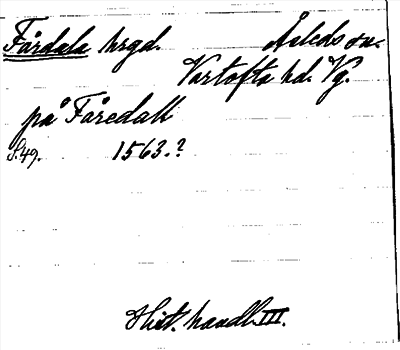 Fårdala hrgd. Åsleds sn.
Vartofta hd. Vg.
på Fåredall
S.49. 1563.?
Hist. handl. III.